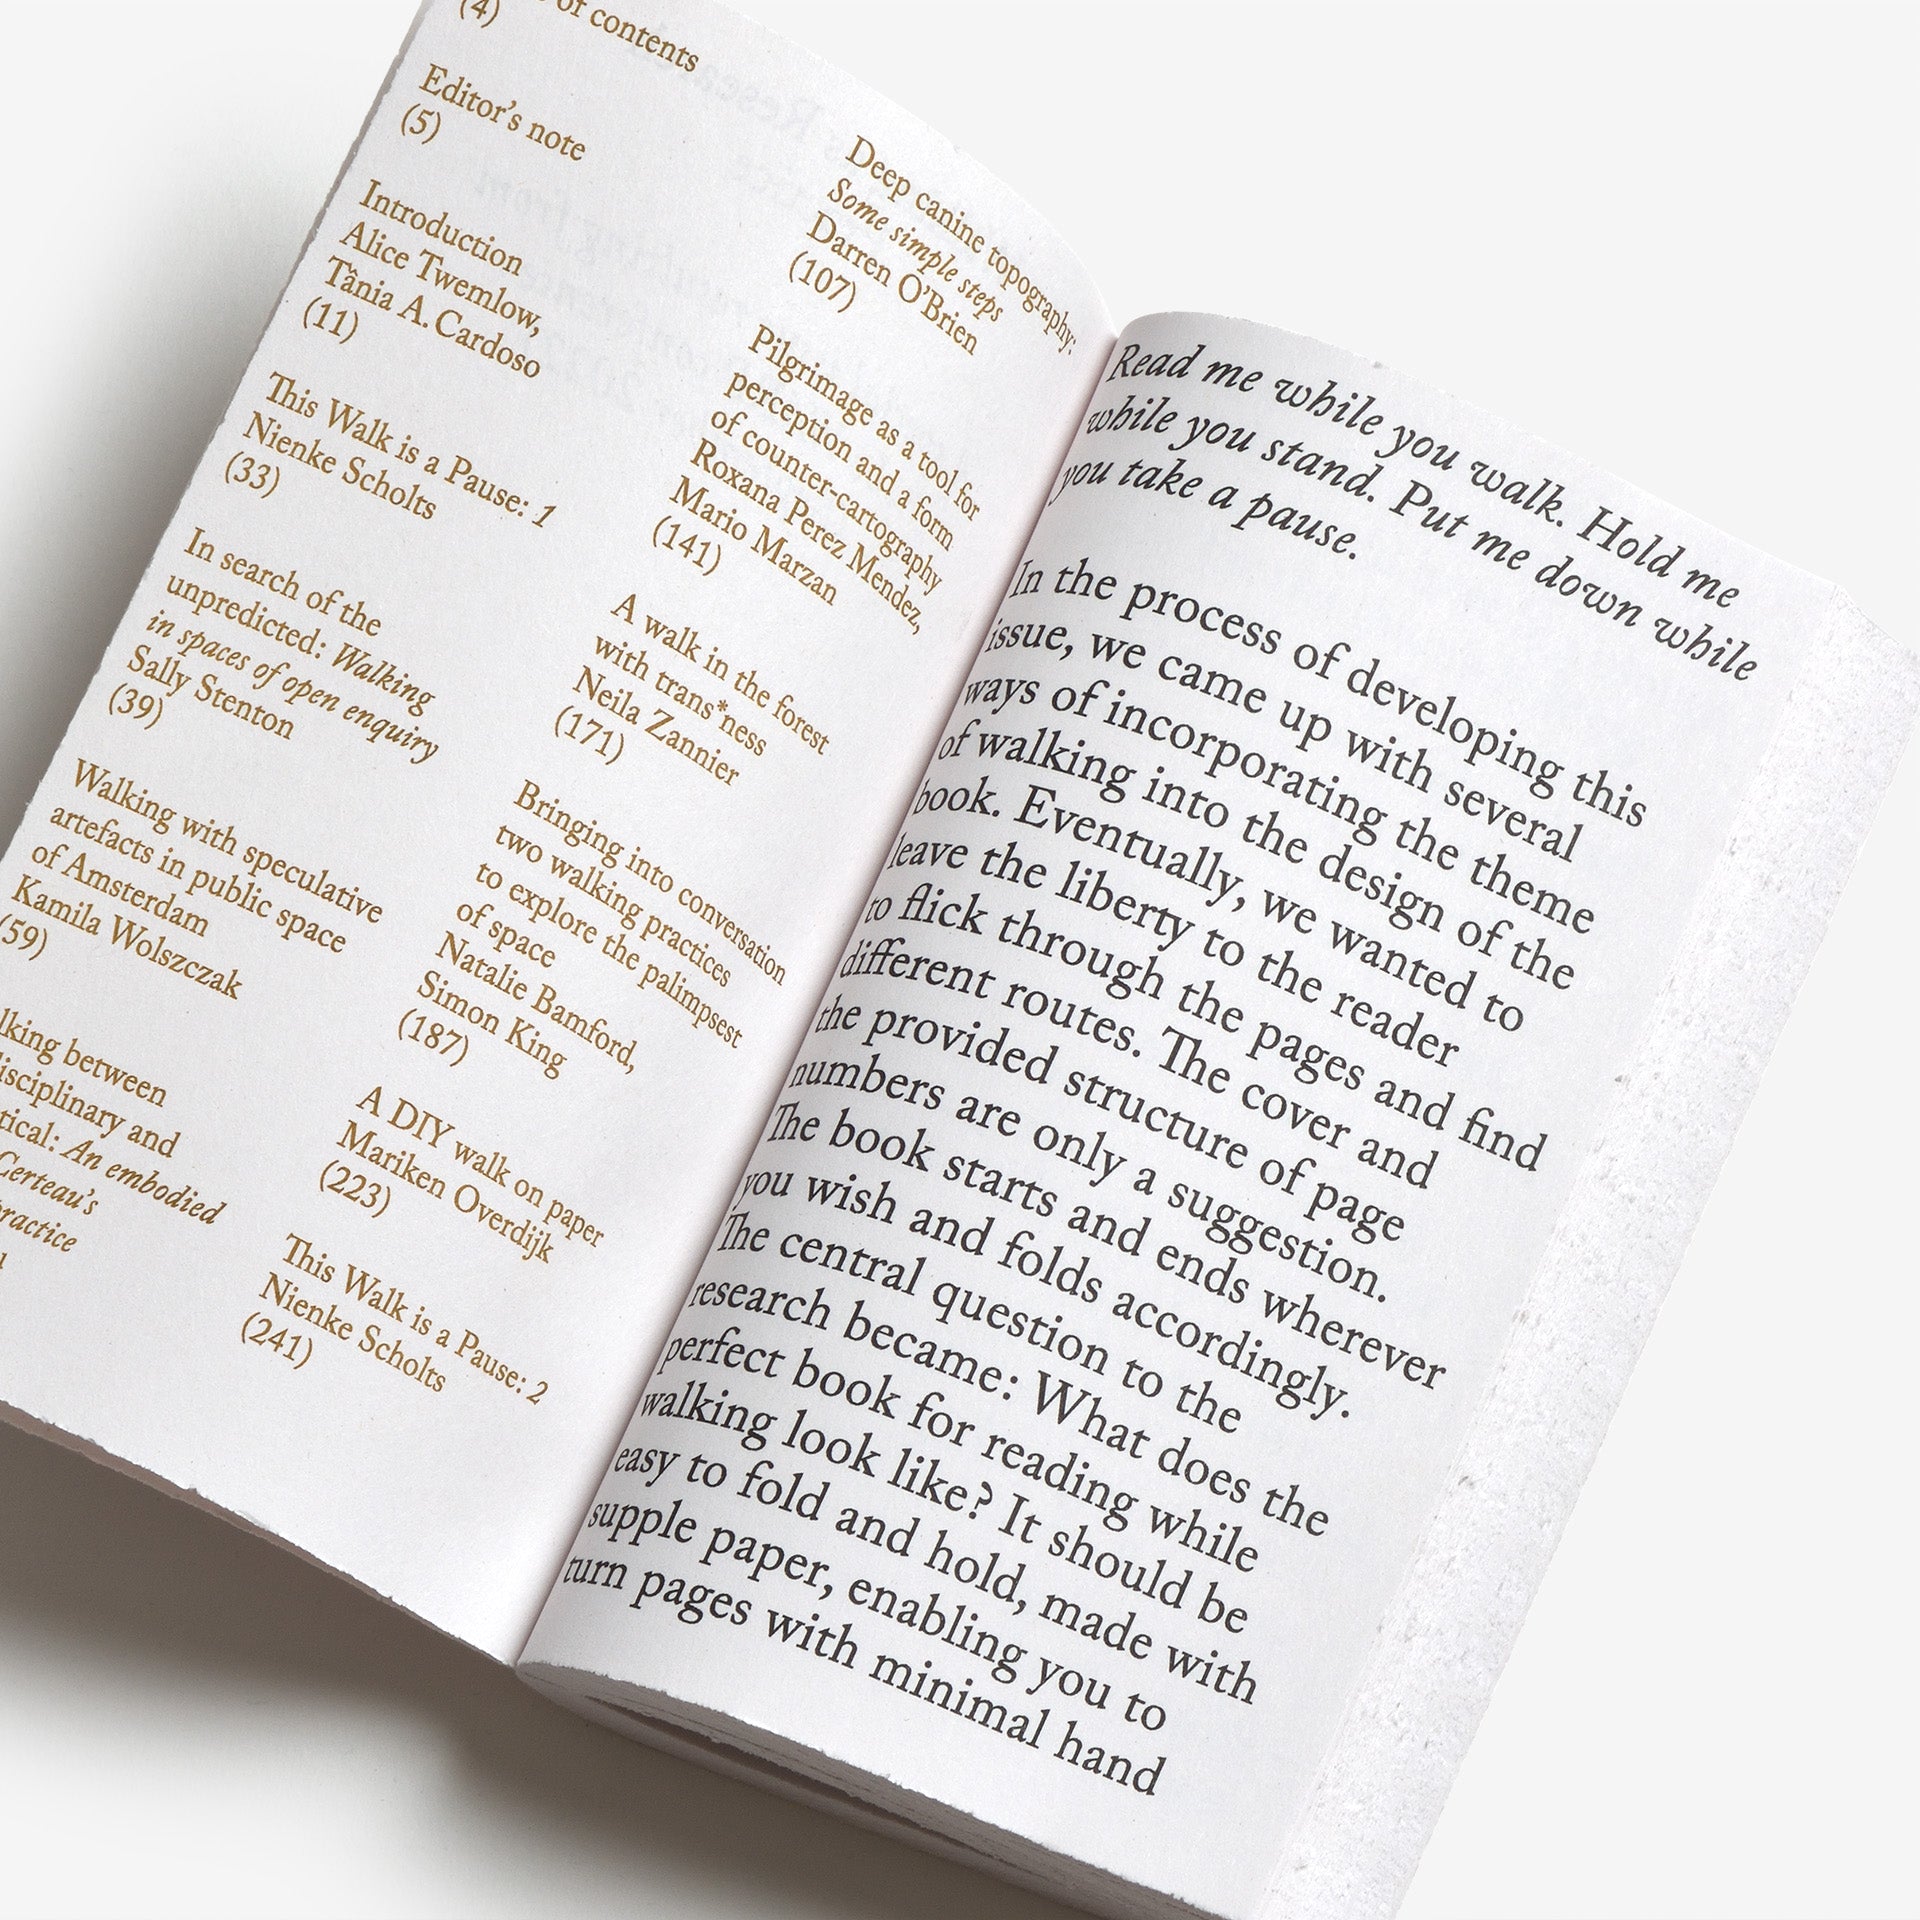 of contents
(4)
Editor's note
(5)
Introduction
Alice Twemlow,
Tânia A. Cardoso
(11)
This Walk is a Pause: 1
Nienke Scholts
(33)
In search of the
unpredicted: Walking
in spaces of open enquiry
Sally Stenton
(39)
Walking with speculative
artefacts in public space
of Amsterdam
Kamila Wolszczak
(59)
between
and
An embodied
Certeau's
practice
Deep canine topography:
Some simple steps
Darren O'Brien
(107)
Pilgrimage as a tool for
perception and a form
of counter-cartography
Roxana Perez Mendez,
Mario Marzan
(141)
A walk in the forest
with trans*ness
Neila Zannier
(171)
Bringing into conversation
two walking practices
to explore the palimpsest
of space
Natalie Bamford,
Simon King
(187)
A DIY walk on paper
Mariken Overdijk
(223)
This Walk is a Pause: 2
Nienke Scholts
(241)
Read me while you walk. Hold me
while you stand. Put me down while
you take a pause.
In the process of developing this
issue, we came up with several
ways of incorporating the theme
of walking into the design of the
book. Eventually, we wanted to
leave the liberty to the reader
to flick through the pages and find
different routes. The cover and
the provided structure of page
numbers are only a suggestion.
The book starts and ends wherever
you wish and folds accordingly.
The central question to the
research became: What does the
perfect book for reading while
walking look like? It should be
easy to fold and hold, made with
supple paper, enabling you to
turn pages with minimal hand